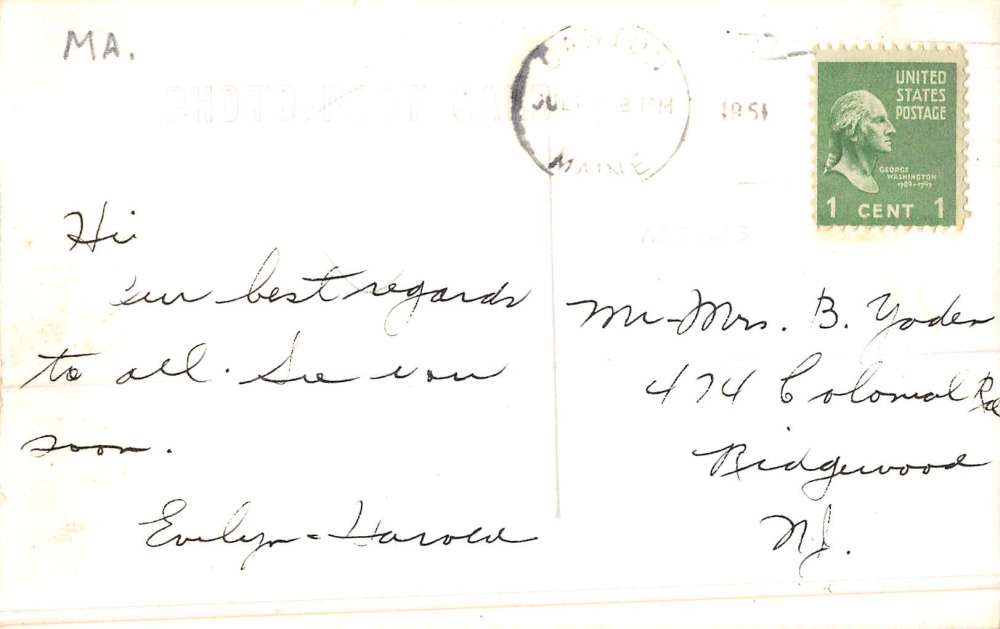 MA.
CANTON
JUL
PM
1951
MAINE
UNITED
STATES
POSTAGE
GEORGE
WASHINGTON
1789-1797
1 CENT 1
Hi
Our best regards
to all. See you
soon.
Evelyn - Harold
Mr-Mrs. B. Yoder
474 Colonial Rd
Ridgewood
N.J.